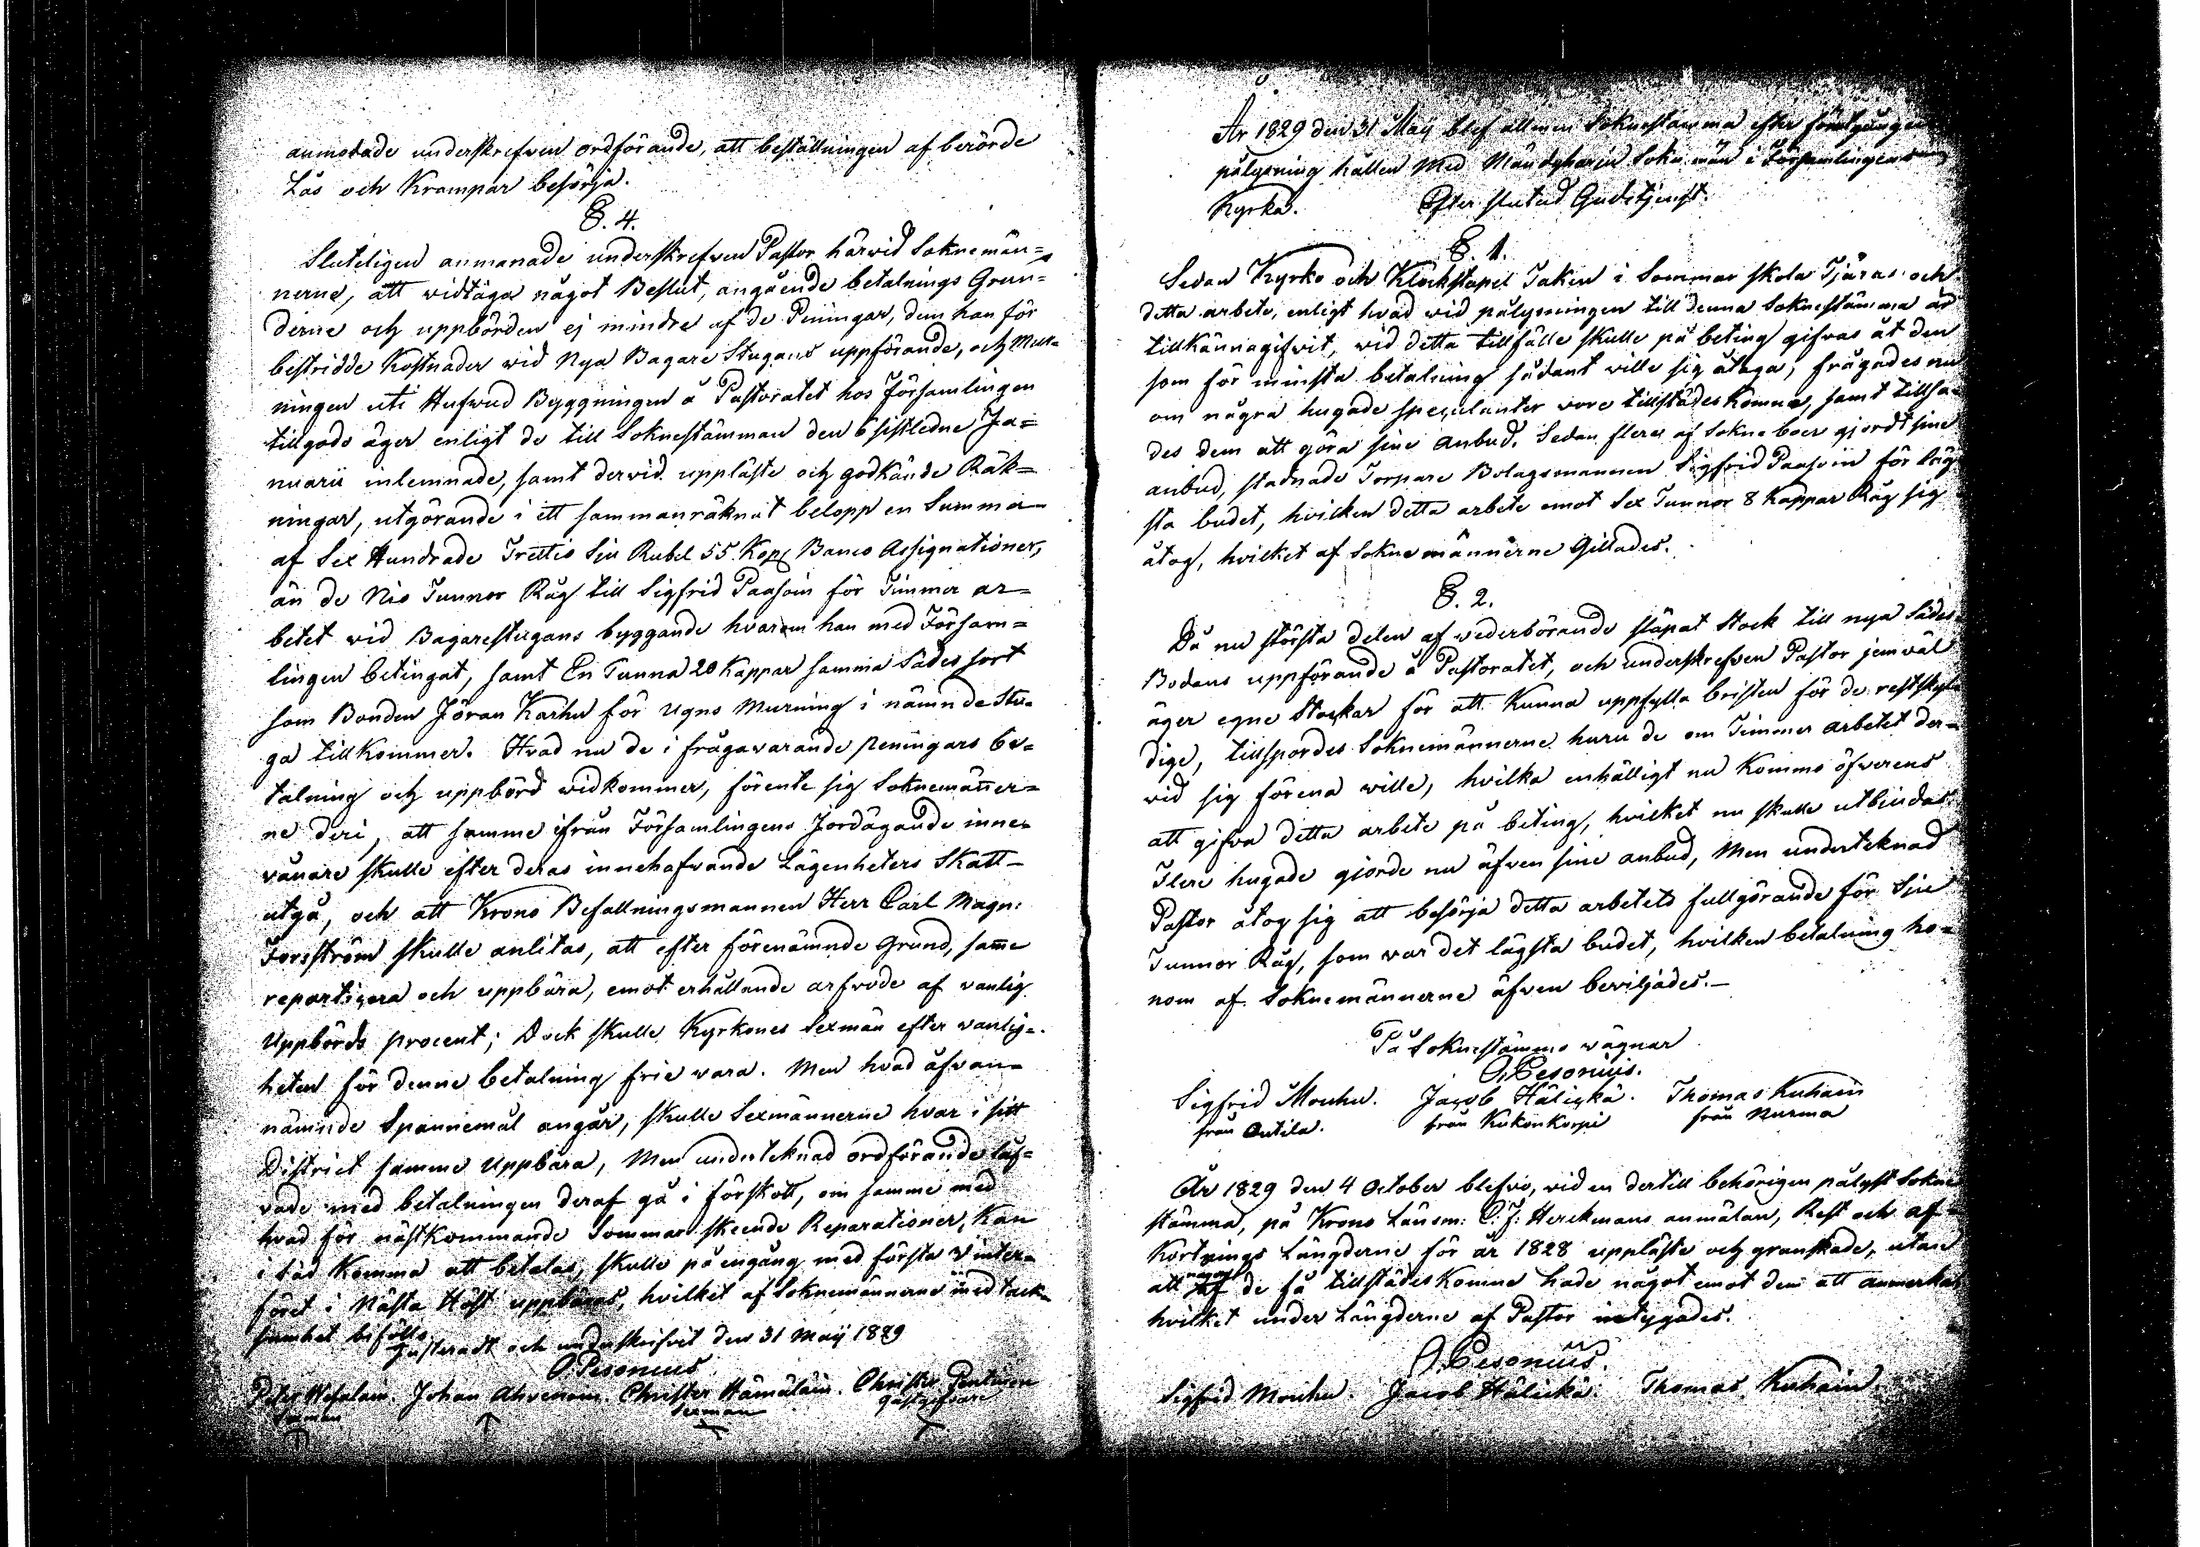 anmodade underskrefwen ordförande, att beställningen af berörde
Lås och Krampar besörja.
§. 4.
Sluteligen anmanade underskrefwen Pastor härwid Soknemän=
nerne, att widtaga något Beslut, angående betalnings Grun=
derne och uppbörden ej mindre af de Peningar, dem han för
bestridde Kostnader wid Nya Bagare Stugans uppförande, och Mur=
ningen uti Hufwud Byggningen å Pastoratet hos Församlingen
tillgodo äger enligt de till Soknestämman den 6 sistledne Ja=
nuarii inlemnade, samt derwid uppläste och godkände Räk=
ningar, utgörande i ett sammanräknat belopp en Summa
af Sex Hundrade Trettio Sju Rubel 55 Kop. Banco Assignationer,
än de Nio Tunnor Råg till Sigfrid Paasoin för Timmer ar=
betet wid Bagarestugans byggande hvarom han med Försam=
lingen betingat, samt En Tunna 20 Kappar samma Sädes sort
som Bonden Jöran Karhu för Ugns Murning i nämnde Stu=
ga tillkommer. Hvad nu de i frågawarande peningars be=
talning och uppbörd widkommer, förente sig Soknemänner=
ne deri, att samme ifrån Församlingens Jordägande inne=
vånare skulle efter deras innehafwande Lägenheters Skatt
utgå, och att Krono Befallningsmannen Herr Carl Magn:
Forsström skulle anlitas, att efter förenämnde Grund, samme
repartizera och uppbära, emot erhållande arfwode af vanlig
Uppbörds procent; Dock skulle Kyrkones Sexmän efter vanlig=
heten för denne betalning frie wara. Men hvad åfvan=
nämnde Spannemål angår, skulle Sexmännerne hvar i sitt
District samme Uppbära, Men underteknad ordförande låf=
vade med betalningen deraf gå i förskott, om samme med
hvad för nästkommande Sommar skeende Reparationer, Kan
i säd Komma att betalas, skulle på engång med första Winter=
föret i Nästa Höst uppbäras, hvilket af Soknemännerne med tack=
samhet biföllo.
Justeradt och underskrifvit den 31 Maji 1829
O. Pesonius
Johan Ahvenoin. Christer Hämäläin. Christer Pentinen
Sexman Sexman Gästgifvare
År 1829 den 31 Maij blef allmen Soknestämma efter föregången
pålysning hållen Med Månsgharju Sokne män i Församlingens
Kyrka. Efter slutad Gudstjenst.
§. 1.
Sedan Kyrko och Klåckstapel Taken i Sommar skola Tjäras och
detta arbete, enligt hvad wid pålysningen till denna Soknestämma är
tillkännagifwit, wid detta tillfälle skulle på beting gifvas åt den
som för minsta betalning sådant wille sig åtaga, frågades nu
om några hugade speculanter wore tillstädes komne, samt tillsa=
des dem att göra sine Anbud. Sedan flera af Sokneboer gjordt sine
anbud, stadnade Torpare Bolagsmannen Sigfrid Paasoin för läg=
sta budet, hvilken detta arbete emot Sex Tunnor 8 Kappar Råg sig
åtog, hvilket af Soknemännerne Gillades.
§. 2.
Då nu största delen af wederbörande släpat Stock till nya Sädes
Bodans uppförande å Pastoratet, och underskrefven Pastor jemwäl
äger egne Stockar för att Kunna uppfylla bristen för de restskyl=
dige, tillspordes Soknemännerne huru de om Timmer arbetet der=
wid sig förena wille, hvilka enhälligt nu Kommo öfwerens
att gifva detta arbete på beting, hvilket nu skulle utbiudas.
Flere hugade gjorde nu äfwen sine anbud, Men underteknad
Pastor åtog sig att besörja detta arbetets fullgörande för Sju
Tunnor Råg, som war det lägsta budet, hvilken betalning ho=
nom af Soknemännerne äfwen bewiljades.—
På Soknestämmo wägnar
O. Pesonius.
Sigfrid Mouhu. Jacob Hälickä. Thomas Kuhain
från Outila. från Kukonkorpi från Nurma
År 1829 den 4 October blefwo, wid en dertill behörigen pålyst Sokne
stämma, på Krono Länsm: C. J: Herckmans anmälan, Rest och af=
Kortnings Längderne för år 1828 uppläste och granskade, utan
att någon af de få tillstädes Komne hade något emot dem att anmerka,
hvilket under Längderne af Pastor intygades.
O. Pesonius.
Sigfrid Mouhu. Jacob Hälickä. Thomas Kuhain.